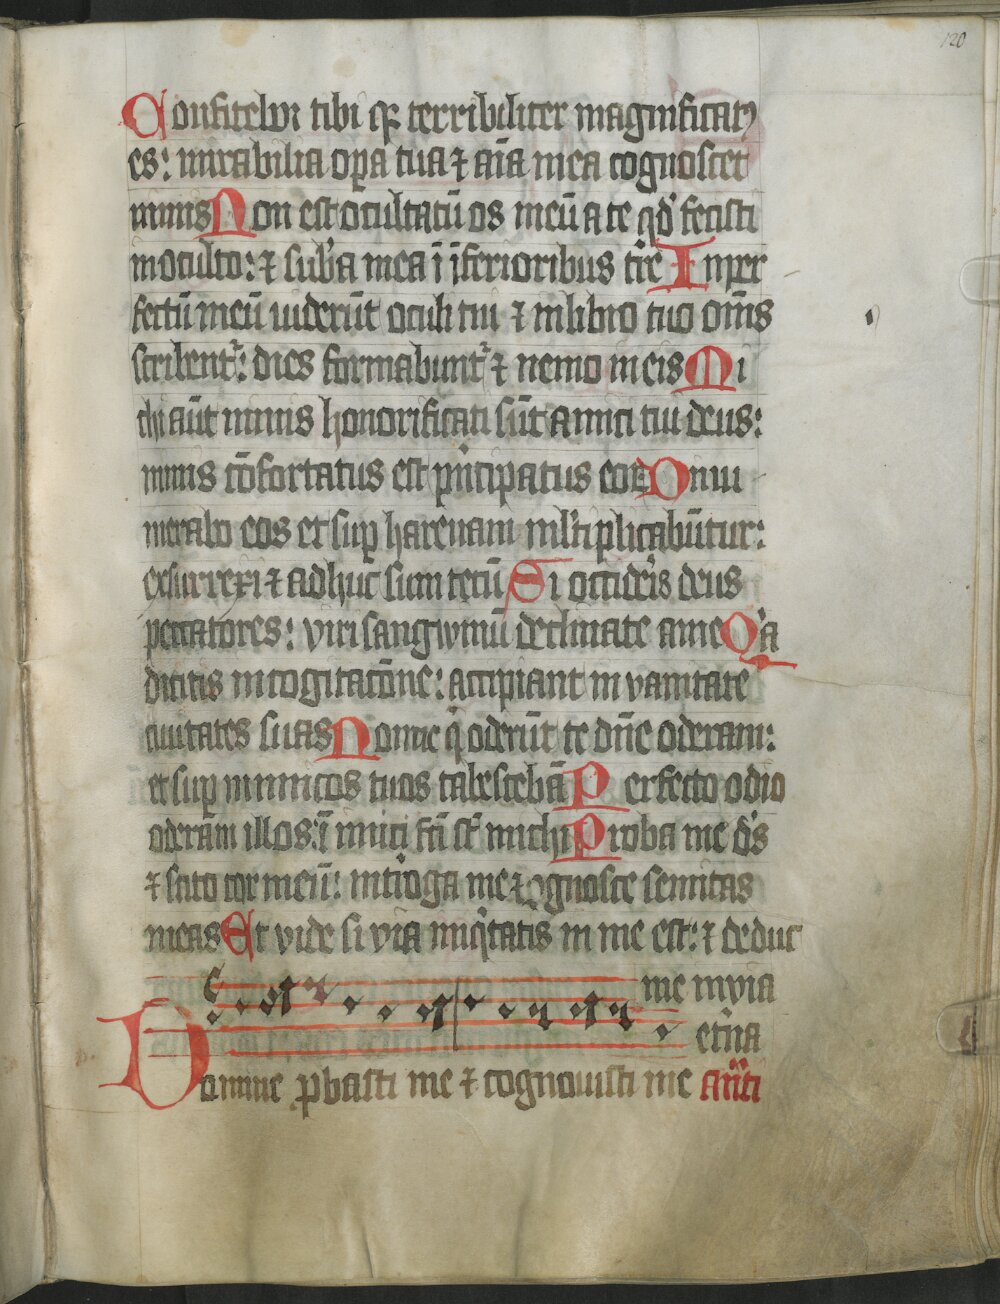 120
Confitebor tibi qꝛ terribiliter magnificatꝰ
es: mirabilia oꝑa tua ⁊ aīa mea cognoscet
nimis Non est occultatū os meū a te qd̓ fecisti
in occulto: ⁊ sub̓a mea ī īferioribus t̓re Inper
fectū meū uiderūt oculi tui ⁊ in libro tuo om̄s
scribent᷑: dies formabunt᷑ ⁊ nemo in eis Mi
chi aūt nimis honorificati sūt amici tui deus:
nimis cōfortatus est pͥncipatus eoꝝ Dinu
merabo eos et suꝑ harenam ml̓tiplicabūtur:
exsurrexi ⁊ adhuc sum tecū Si occideͥs deus
peccatores: viri sangwinū declinate a me Qͥa
dicitis in cogitacōne: accipiant in vanitate
ciuitates suas Nonne qͥ oderūt te dn̄e oderam:
et suꝑ inimicos tuos tabescebā Perfecto odio
oderam illos: ī imici fc̄i st̄ michi Proba me ds̓
⁊ scito cor meū: int̓roga me ⁊ ꝯgnosce semitas
meas Et vide si via iniqͥtatis in me est: ⁊ deduc
me in via
et̓na
Domine ꝓbasti me ⁊ cognouisti me an̄ti